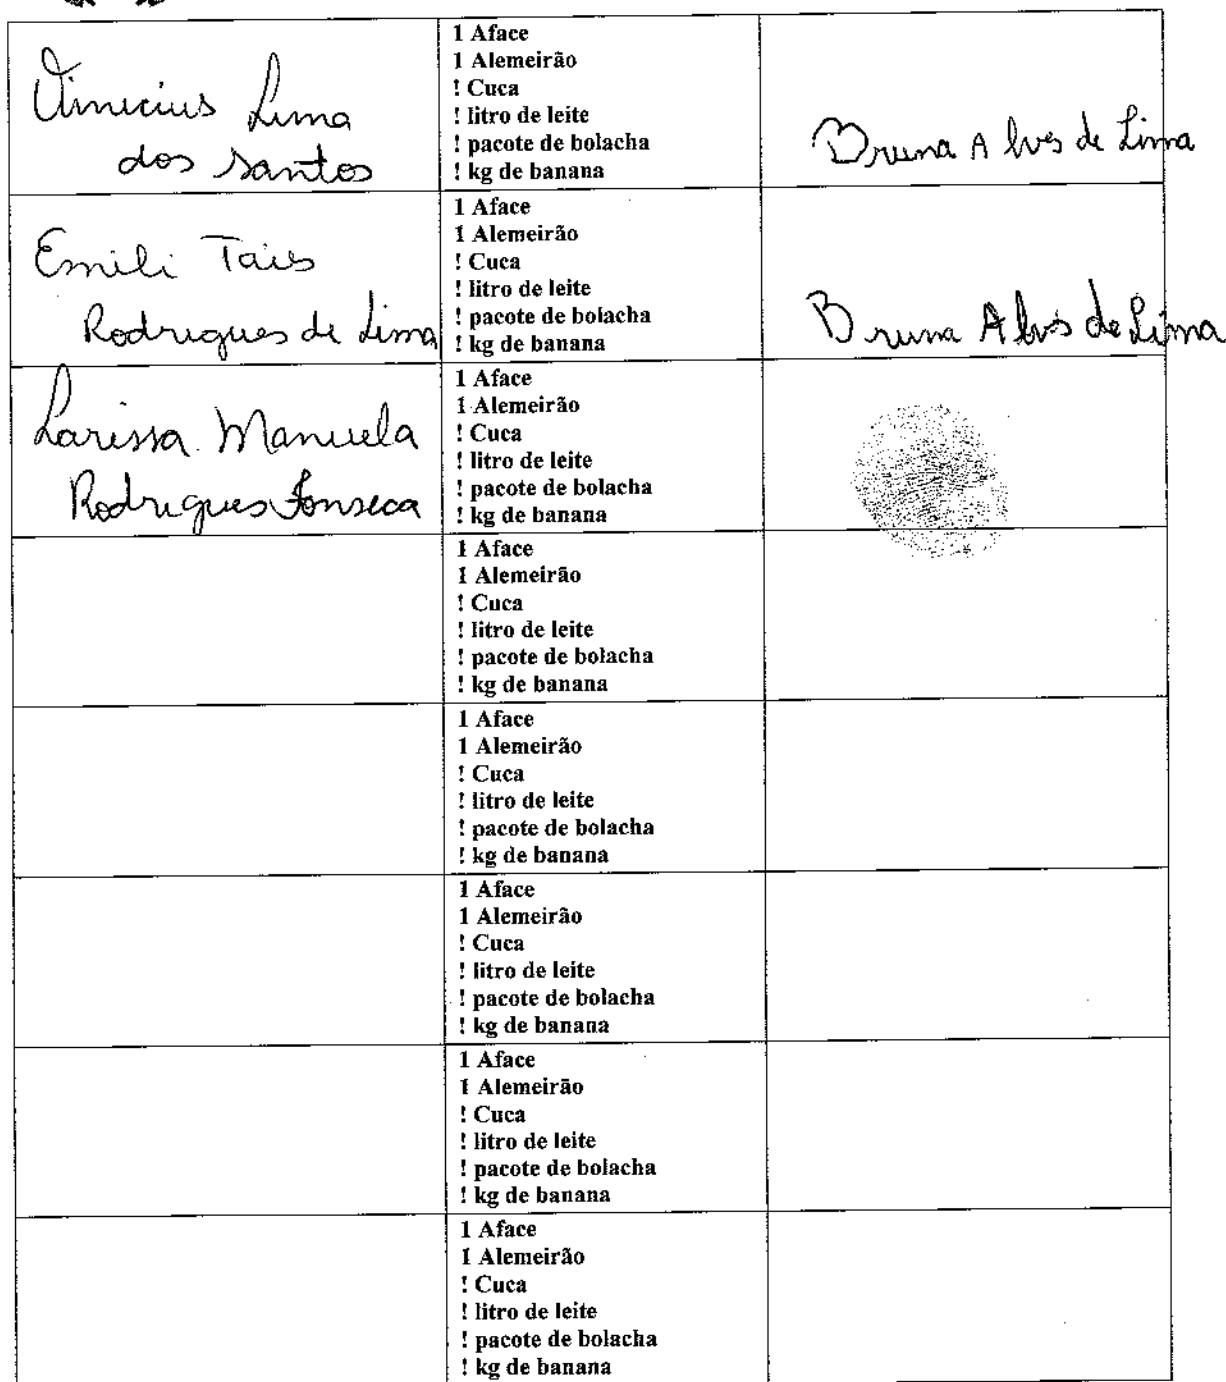 Vinicius Lima
dos Santos
1 Aface
1 Alemeirão
! Cuca
! litro de leite
! pacote de bolacha
! kg de banana
Bruna Alves de Lima
Emili Tais
Rodrigues de Lima
1 Aface
1 Alemeirão
! Cuca
! litro de leite
! pacote de bolacha
! kg de banana
Bruna Alvs de Lima
Larissa Manuela
Rodrigues Fonseca
1 Aface
1 Alemeirão
! Cuca
! litro de leite
! pacote de bolacha
! kg de banana
1 Aface
1 Alemeirão
! Cuca
! litro de leite
! pacote de bolacha
! kg de banana
1 Aface
1 Alemeirão
! Cuca
! litro de leite
! pacote de bolacha
! kg de banana
1 Aface
1 Alemeirão
! Cuca
! litro de leite
! pacote de bolacha
! kg de banana
1 Aface
1 Alemeirão
! Cuca
! litro de leite
! pacote de bolacha
! kg de banana
1 Aface
1 Alemeirão
! Cuca
! litro de leite
! pacote de bolacha
! kg de banana